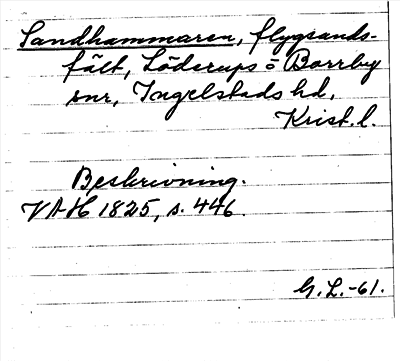 Sandhammaren, flygsands-
fält, Löderups o Borrby
snr, Ingelstads hd,
Krist. l.
Beskrivning.
VAH 1825, s. 446.
G. L. -61.